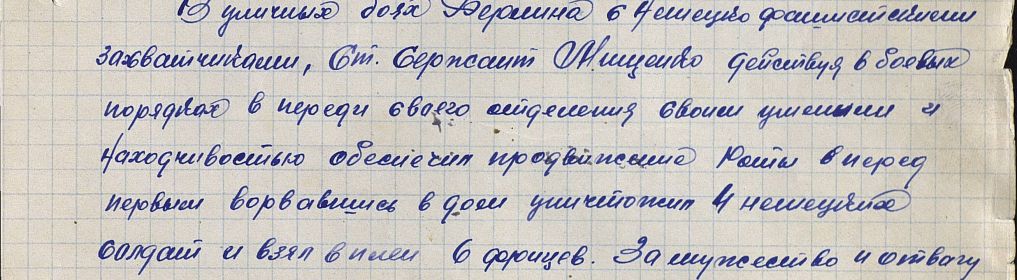 В уличных боях Берлина с Немецко фашистскими
захватчиками, Ст. Сержант Мищенко действуя в боевых
порядках в переди своего отделения своим умением и
Находчивостью обеспечил продвижение Роты вперед
первым ворвавшись в дом уничтожил 4 немецких
солдат и взял в плен 6 фрицев. За мужество и отвагу